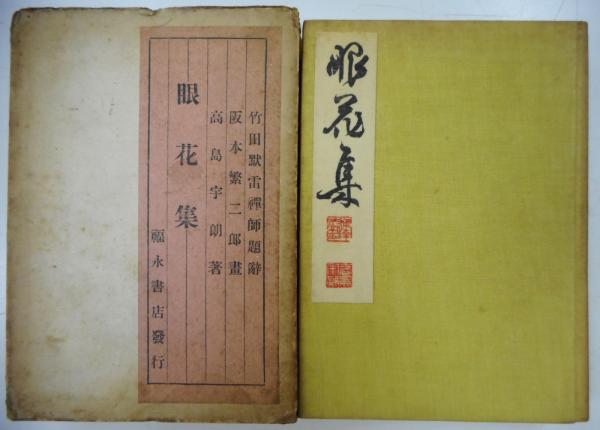 竹田默雷禪師題辭
阪本繁二郎畫
高島宇朗著
眼花集
福永書店發行
眼花集